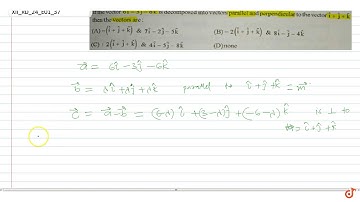 XII_KD_24_E01_37
If the vector 6î − 3ĵ − 6k̂ is decomposed into vectors parallel and perpendicular to the vector î + ĵ + k̂
then the vectors are :
(A) −(î + ĵ + k̂) & 7î − 2ĵ − 5k̂ (B) −2(î + ĵ + k̂) & 8î − ĵ − 4k̂
(C) + 2(î + ĵ + k̂) & 4î − 5ĵ − 8k̂ (D) none
a⃗ = 6î − 3ĵ − 6k̂
b⃗ = λî + λĵ + λk̂ parallel to î + ĵ + k̂ = m⃗
c⃗ = a⃗ − b⃗ = (6−λ)î + (3−λ)ĵ + (−6−λ)k̂ is ⊥ to
= î + ĵ + k̂